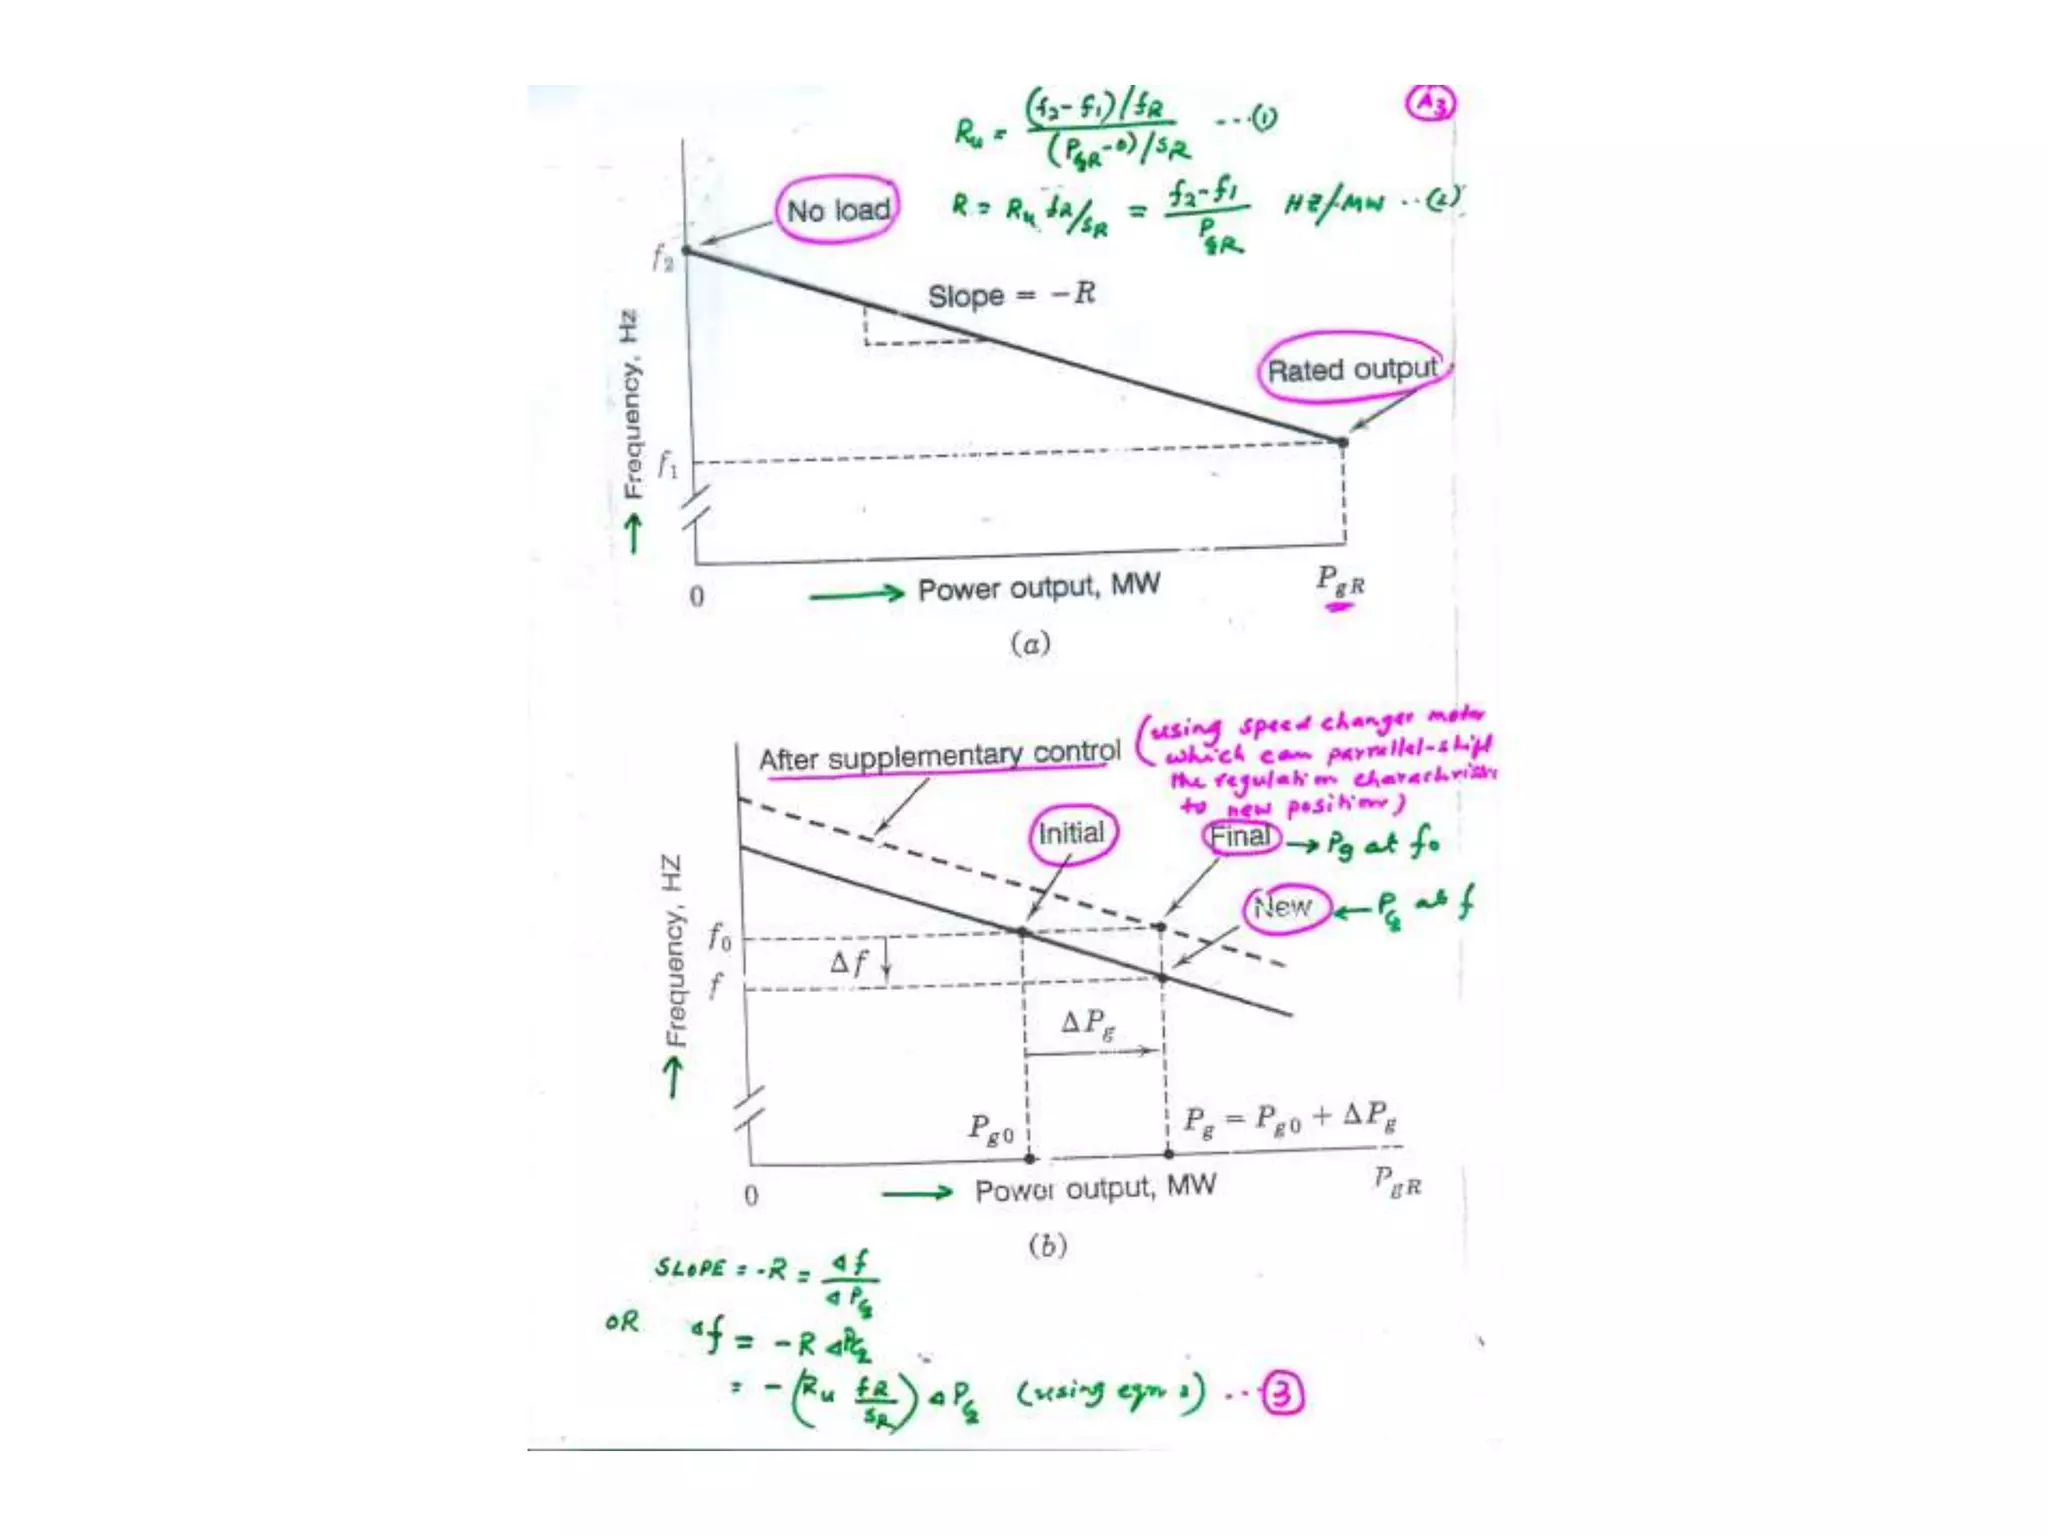 A3
Ru = (f2-f1)/fR / (PgR-0)/SR ---(1)
R = Ru fR/SR = f2-f1 / PgR HZ/MW --(2)
No load
f2
Slope = −R
Rated output
Frequency, Hz
f1
0
Power output, MW
PgR
(a)
After supplementary control
(using speed changer motor
which can parrallel-shift
the regulation
to new position)
Initial
Final → Pg at f0
New ← Pg at f
Frequency, HZ
f0
Δf
f
ΔPg
Pg0
Pg = Pg0 + ΔPg
0
Power output, MW
PgR
(b)
SLOPE = -R = Δf / ΔPg
OR Δf = -R ΔPg
= -(Ru fR/SR) ΔPg (using eqn 2) --- 3